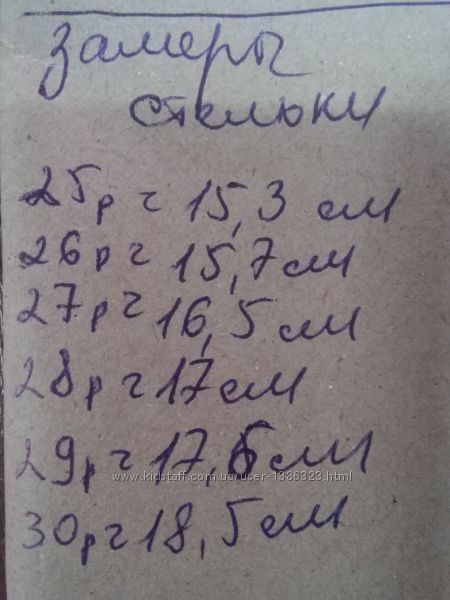 Замеры
стельки
25р = 15,3 см
26р = 15,7 см
27р = 16,5 см
28р = 17 см
29р = 17,6 см
www.kidstaff.com.ua/user-1336323.html
30р = 18,5 см